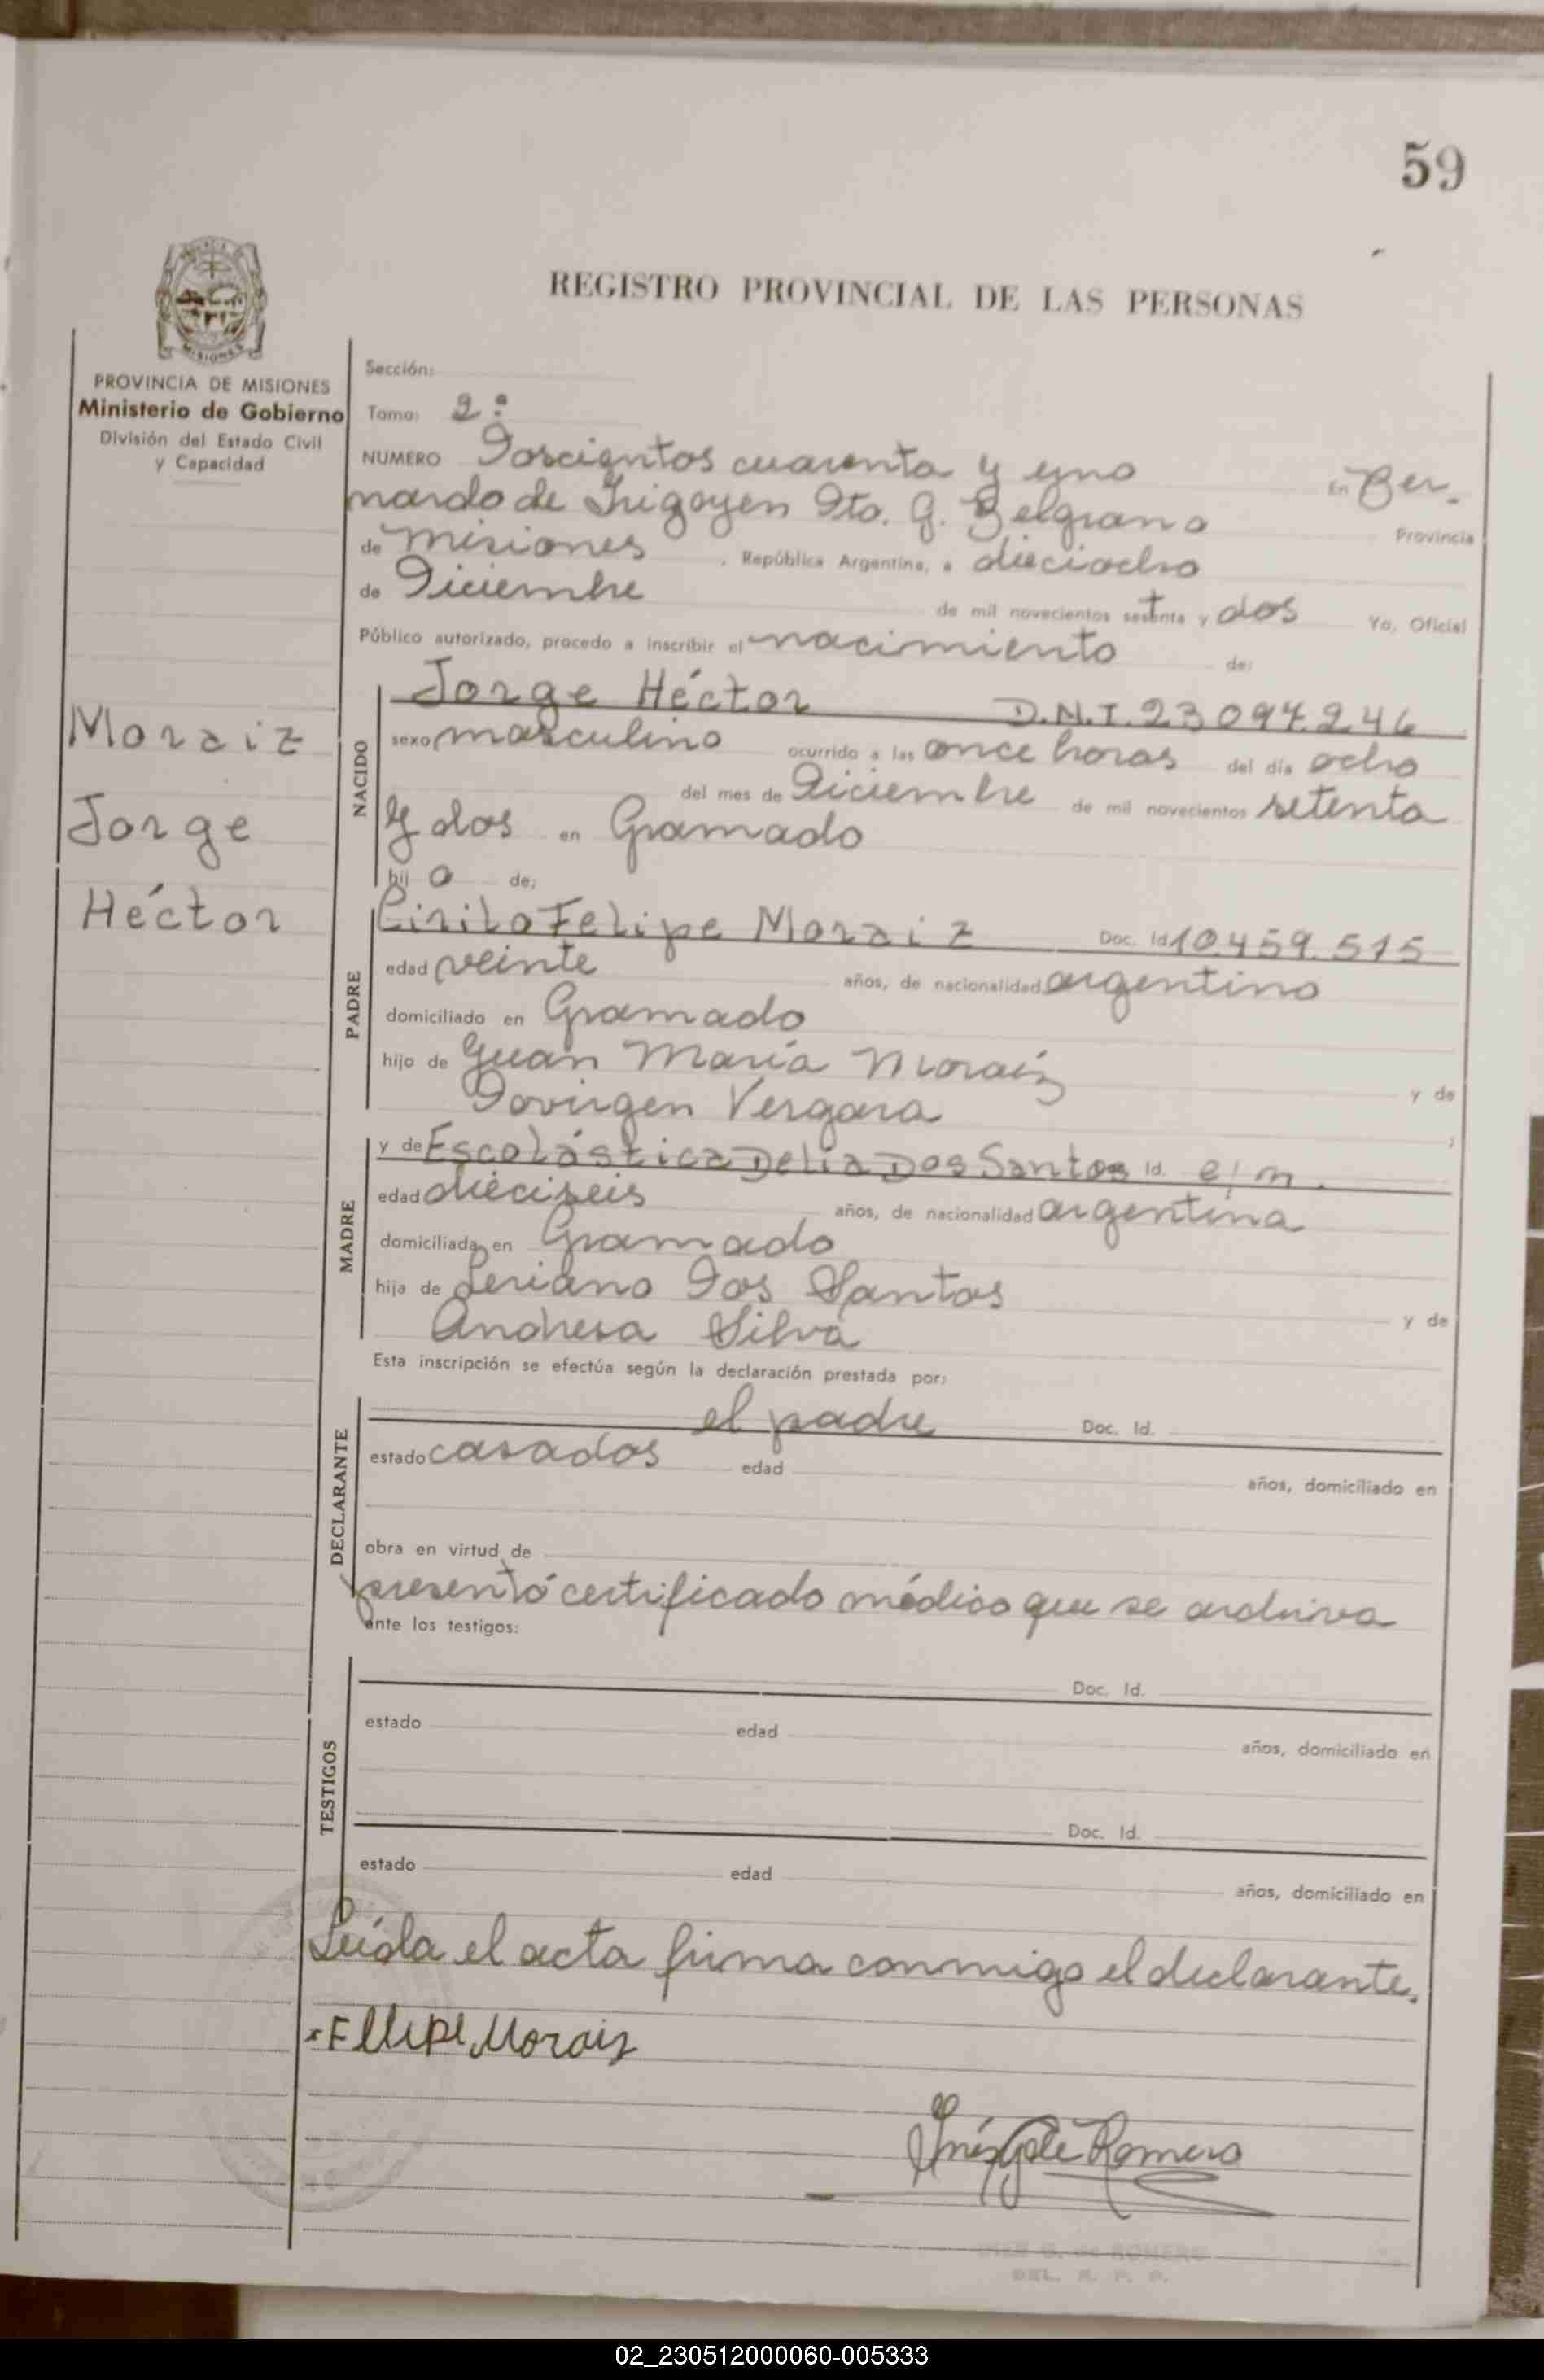 59
REGISTRO PROVINCIAL DE LAS PERSONAS
MISIONES
PROVINCIA DE MISIONES
Ministerio de Gobierno
División del Estado Civil
y Capacidad
Moraiz
Jorge
Héctor
Sección:
Tomo: 2º
NUMERO Doscientos cuarenta y uno En Ber-
nardo de Irigoyen Dto. G. Belgrano Provincia
de Misiones, República Argentina, a dieciocho
de Diciembre de mil novecientos setenta y dos Yo, Oficial
Público autorizado, procedo a inscribir el nacimiento de:
NACIDO
Jorge Héctor D.N.I. 23097.246
sexo masculino ocurrido a las once horas del día ocho
del mes de Diciembre de mil novecientos setenta
y dos en Gramado
hij o de;
PADRE
Cirilo Felipe Moraiz Doc. Id 10.459.515
edad veinte años, de nacionalidad argentino
domiciliado en Gramado
hijo de Juan María Moraiz y de
Dovirgen Vergara ;
MADRE
y de Escolástica Delia Dos Santos Id. e/m.
edad dieciseis años, de nacionalidad argentina
domiciliada en Gramado
hija de Seriano Dos Santos y de
Andresa Silva
Esta inscripción se efectúa según la declaración prestada por:
DECLARANTE
el padre Doc. Id.
estado casados edad años, domiciliado en
obra en virtud de
presentó certificado médico que se archiva
ante los testigos:
TESTIGOS
Doc. Id.
estado edad años, domiciliado en
Doc. Id.
estado edad años, domiciliado en
Leída el acta firma conmigo el declarante.
Fllipe Moraiz
Inés G de Romero
INES G. de ROMERO
DEL. R. P. P.
02_230512000060-005333